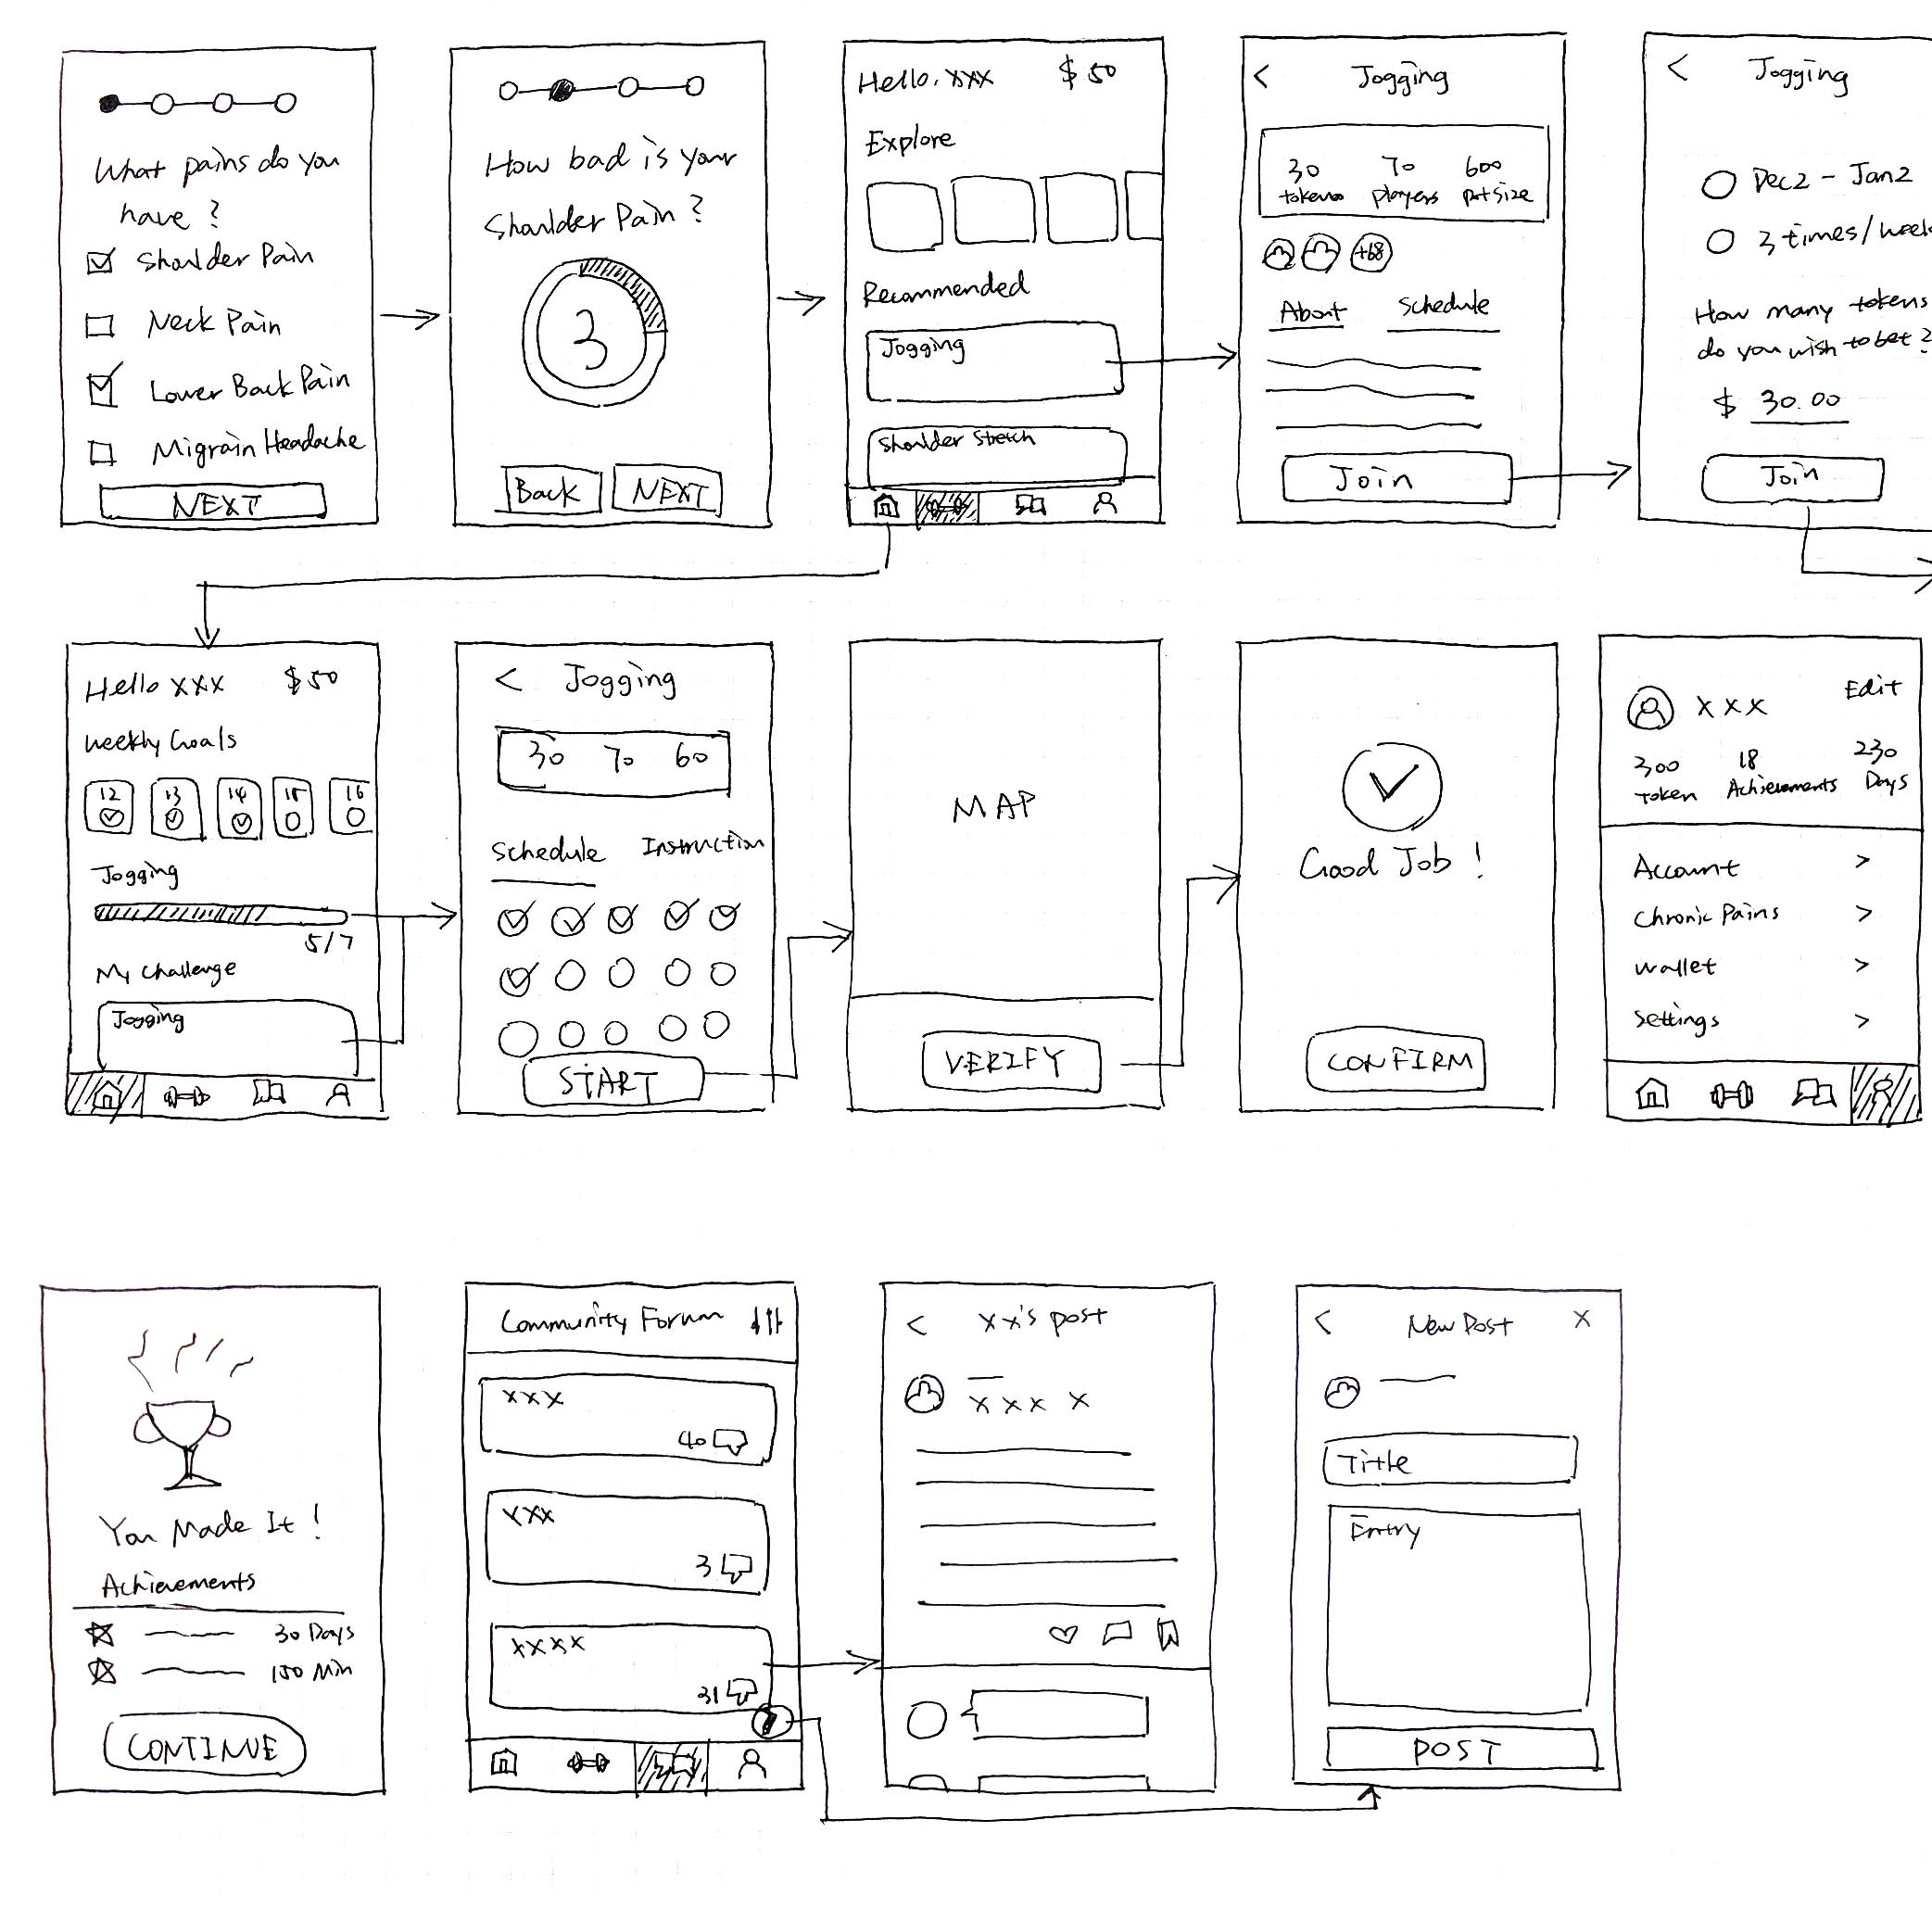 What pains do you
have ?
Shoulder Pain
Neck Pain
Lower Back Pain
Migrain Headache
NEXT
How bad is your
Shoulder Pain ?
3
Back
NEXT
Hello. xxx $ 50
Explore
Recommended
Jogging
Shoulder Stretch
< Jogging
30 70 600
tokens players pot size
+68
About Schedule
Join
< Jogging
Dec2 - Jan2
3 times/week
How many tokens
do you wish to bet ?
$ 30.00
Join
Hello xxx $50
Weekly Goals
12 13 14 15 16
Jogging
5/7
My Challenge
Jogging
< Jogging
30 70 60
Schedule Instruction
START
MAP
VERIFY
Good Job !
CONFIRM
xxx Edit
300 18 230
Token Achievements Days
Account >
Chronic Pains >
Wallet >
Settings >
You Made It !
Achievements
30 Days
150 Min
CONTINUE
Community Forum
xxx
40
xxx
3
xxxx
31
< xx's post
xxx x
< New Post x
Title
Entry
POST